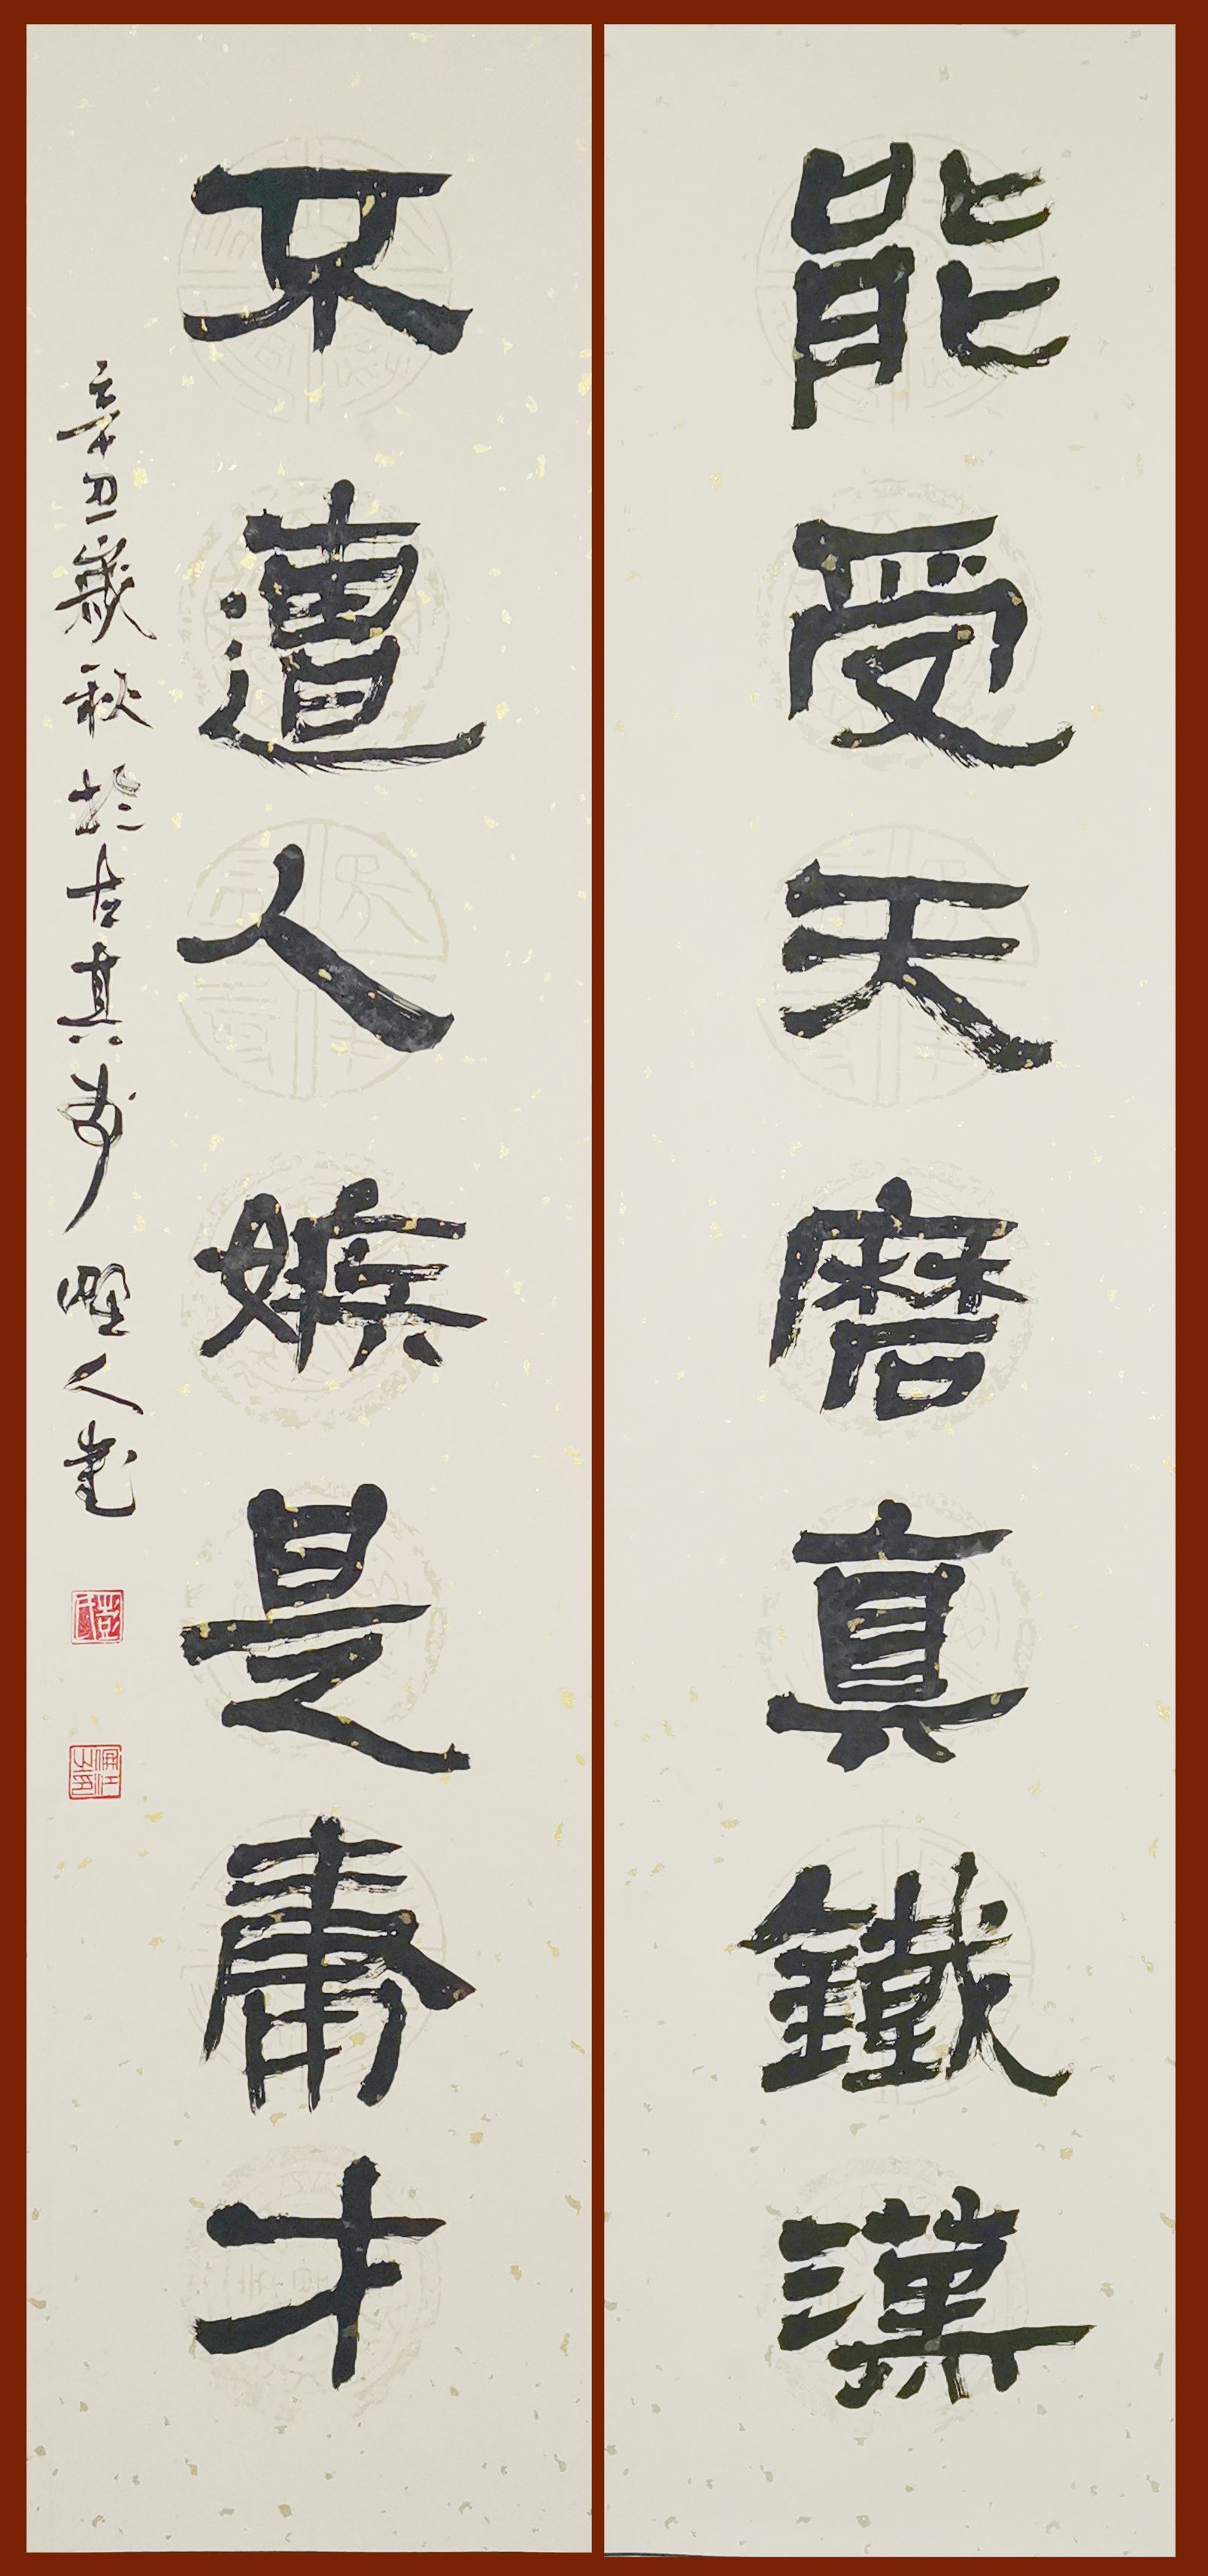 能受天磨真鐵漢
不遭人嫉是庸才
辛丑歲秋於古真州野人書